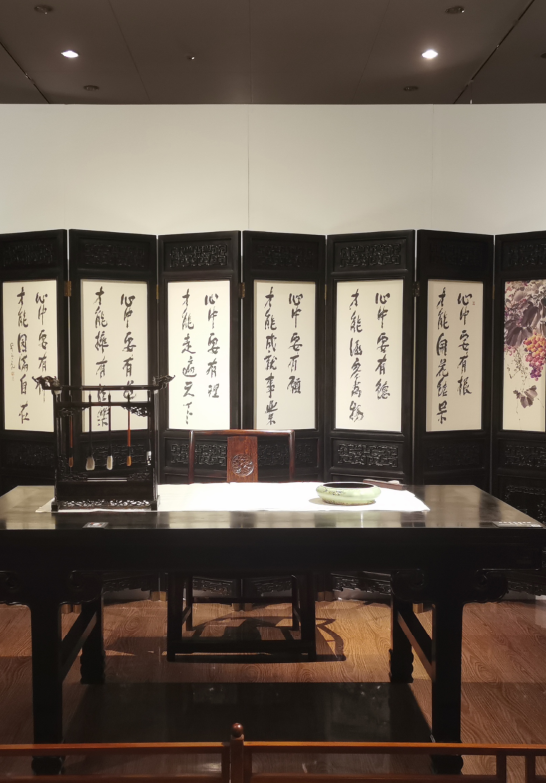 心中要有根
才能開花結果
心中要有德
才能涵容萬物
心中要有願
才能成就事業
心中要有理
才能走遍天下
心中要有
才能擁有
心中要有
才能圓滿自在